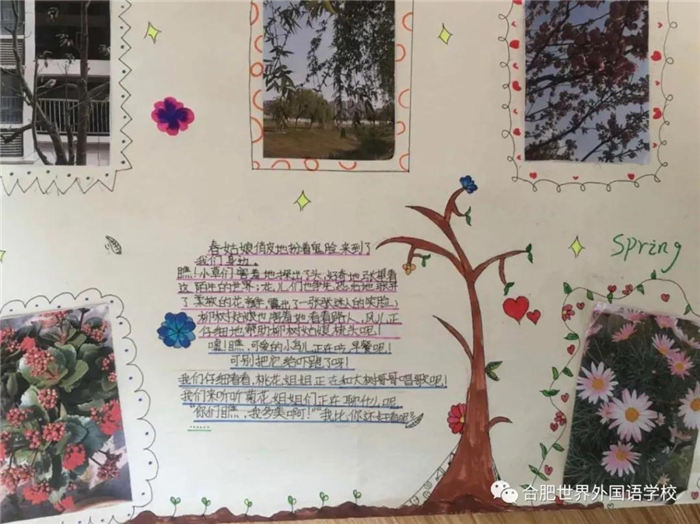 春姑娘俏皮地扮着鬼脸来到了
我们身边。
瞧!小草们害羞地探出了头,好奇地张望着
这陌生的世界;花儿们也争先恐后地张开
了美丽的花瓣露出了一张张迷人的笑脸;
柳树姑娘也害羞地看着路人,风儿正
仔细地帮助柳树姑娘梳头呢!
嘿!瞧,可爱的小鸟儿正在吃早餐呢!
可别把它给吓跑了呀!
我们仔细看看,桃花姐姐正在和大树哥哥唱歌呢!
我们来听听菊花姐姐们正在聊什么呢
"你们瞧,我多美啊!""我比你还好看呢
Spring
合肥世界外国语学校